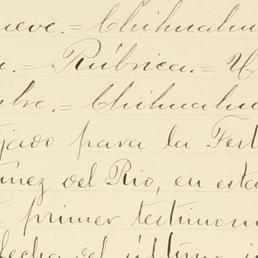 ueve.= Chihuahu
a.= Rúbrica.= U
bre.= Chihuahu
jado para la Test
únez del Rio, en esta
primer testimon
fecha del último i